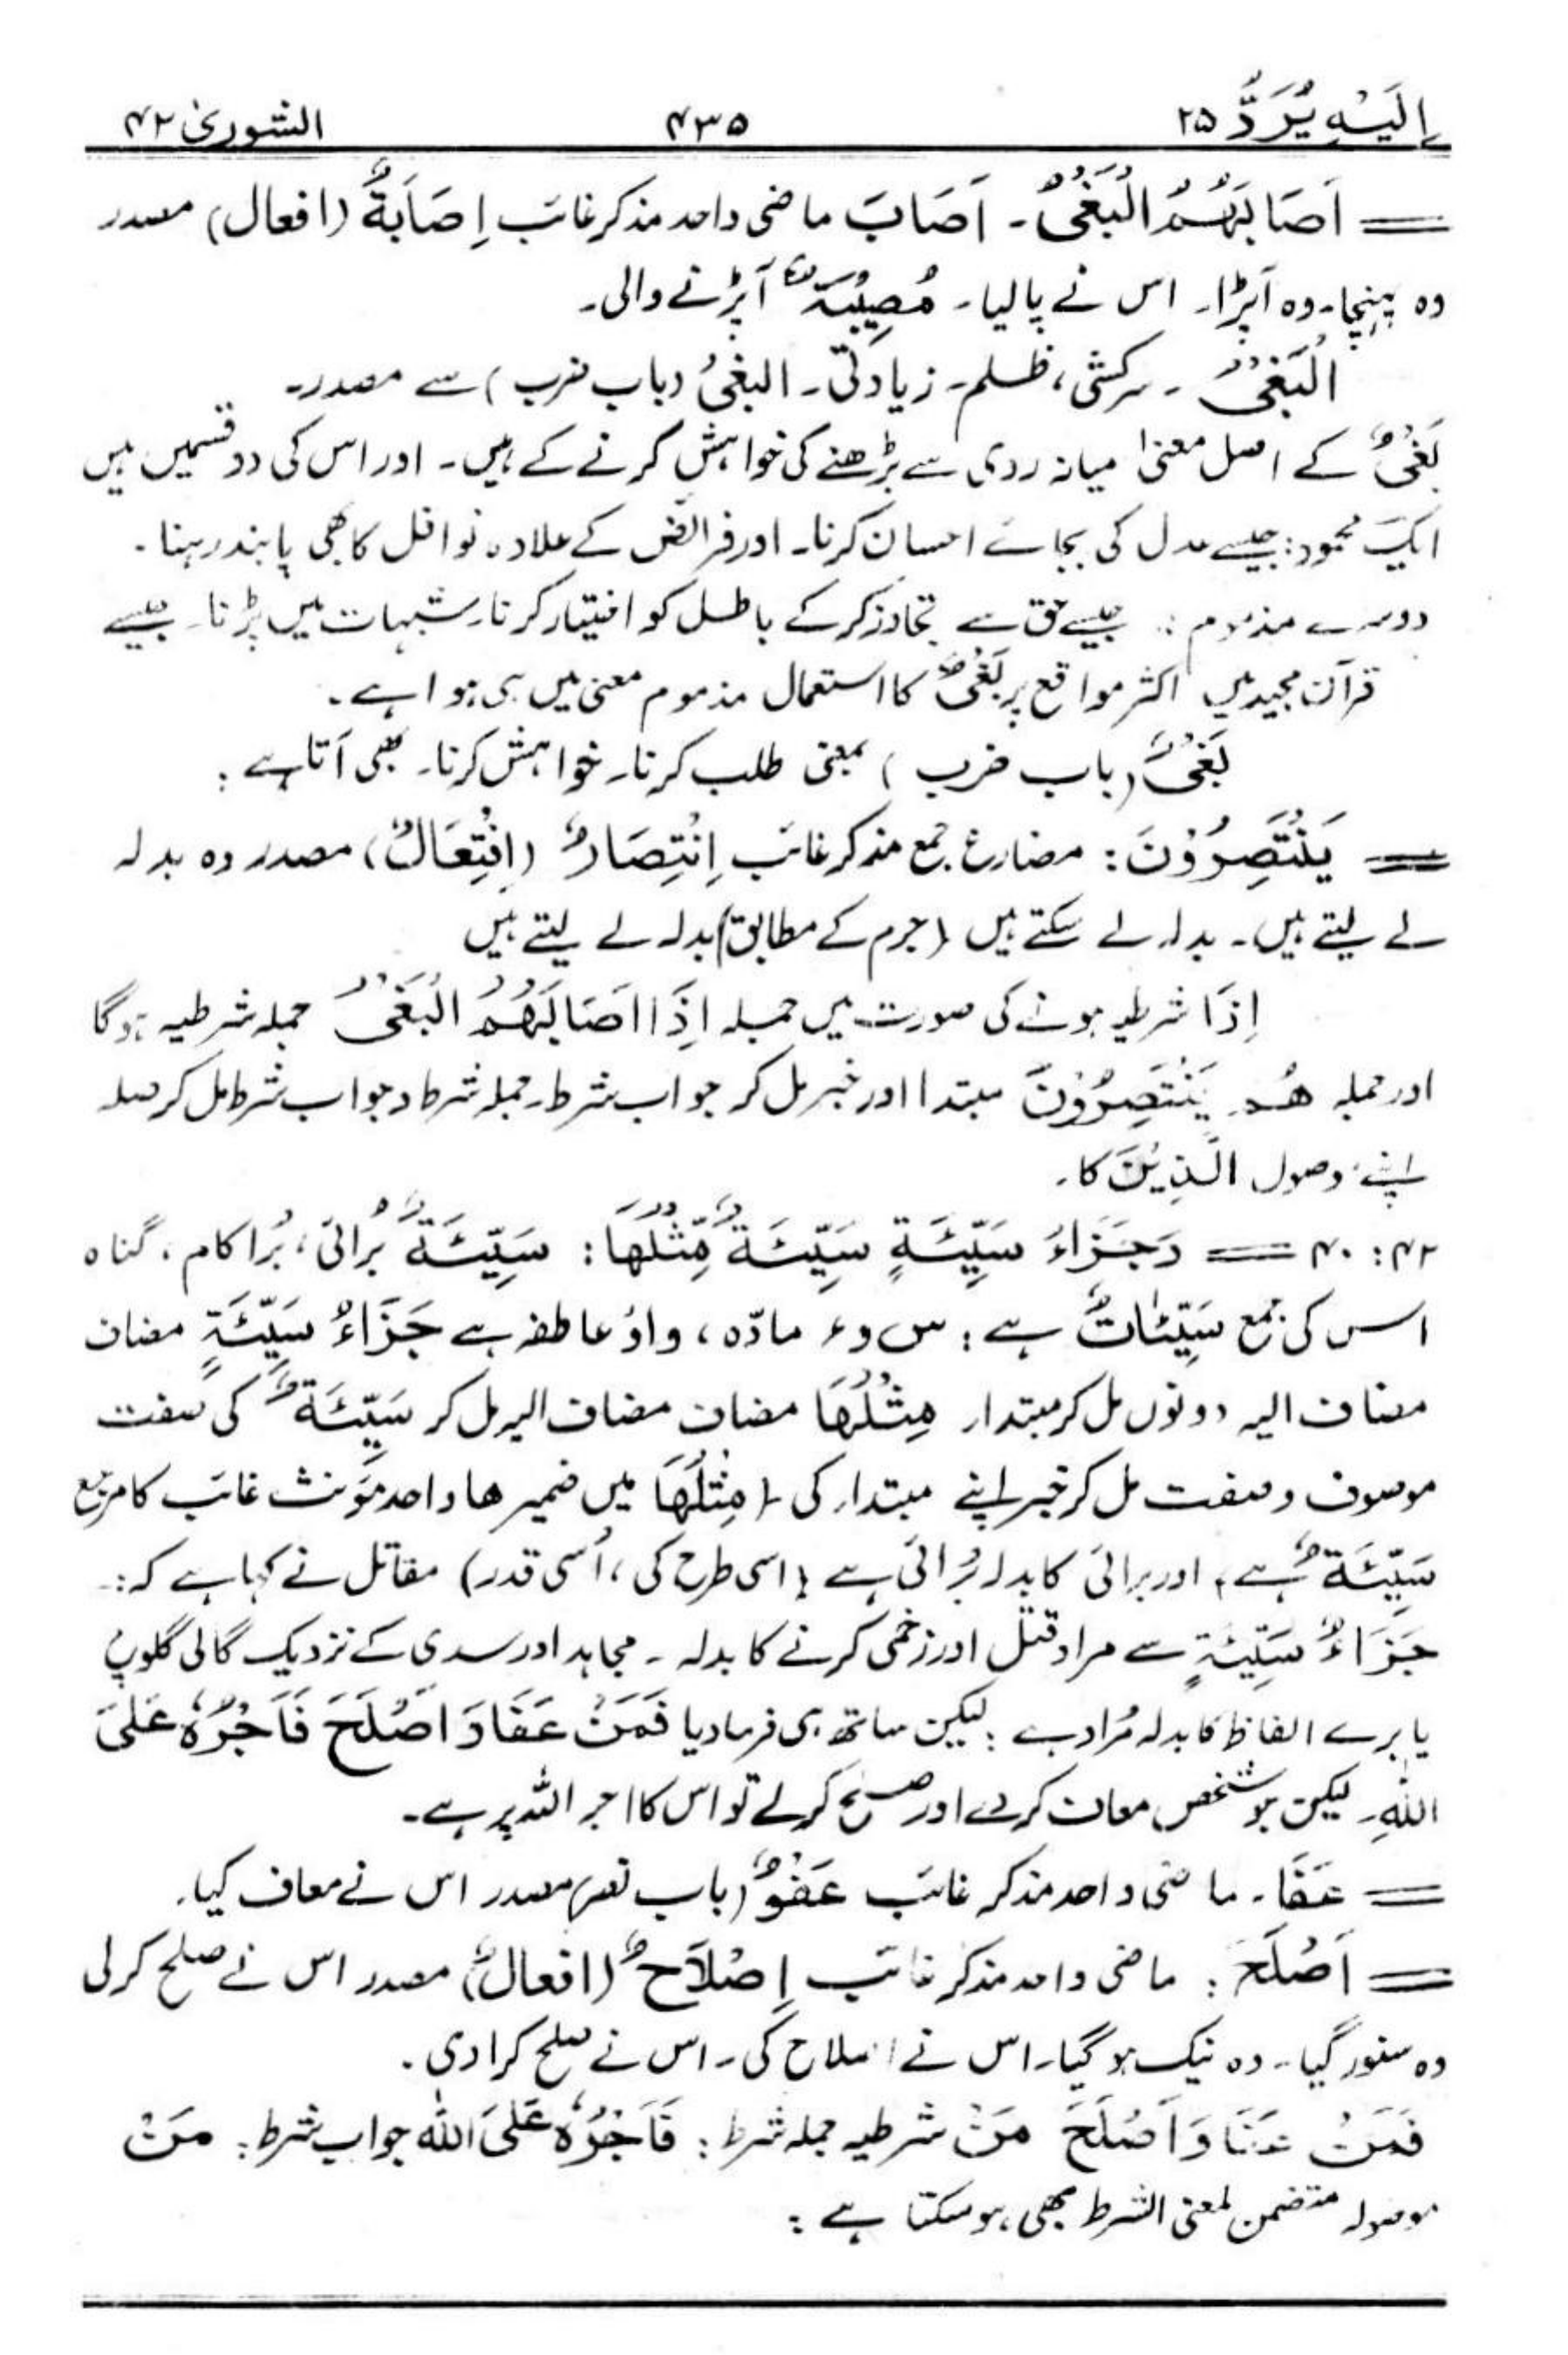 اِلَيْهِ يُرَدُّ ۲۵ ۴۳۵ الشورىٰ ۴۲
== اَصَابَهُمُ الْبَغْيُ۔ اَصَابَ ماضی واحد مذکر غائب اِصَابَةٌ (افعال) مصدر
وہ پہنچا۔ وہ آپڑا۔ اس نے پالیا۔ مُصِيْبَةٌ آپڑنے والی۔
اَلْبَغْيُ ۔ سرکشی، ظلم۔ زیادتی۔ البغیُ (باب ضرب) سے مصدر۔
بَغْیٌ کے اصل معنیٰ میانہ روی سے بڑھنے کی خواہش کرنے کے ہیں۔ اور اس کی دو قسمیں ہیں
ایک محمود: جیسے عدل کی بجائے احسان کرنا۔ اور فرائض کے علاوہ نوافل کا بھی پابند رہنا۔
دوسرے مذموم: جیسے حق سے تجاوز کرکے باطل کو اختیار کرنا۔ شبہات میں پڑنا۔ جیسے
قرآن مجید میں اکثر مواقع پر بَغْیٌ کا استعمال مذموم معنی میں ہی ہوا ہے۔
بَغْیٌ (باب ضرب) بمعنی طلب کرنا۔ خواہش کرنا۔ بھی آتا ہے:
== يَنْتَصِرُوْنَ: مضارع جمع مذکر غائب اِنْتِصَارٌ (اِفْتِعَالٌ) مصدر وہ بدلہ
لے لیتے ہیں۔ بدلہ لے سکتے ہیں (جرم کے مطابق) بدلہ لے لیتے ہیں
اِذَا شرطیہ ہونے کی صورت میں جملہ اِذَا اَصَابَهُمُ الْبَغْيُ جملہ شرطیہ ہوگا
اور جملہ هُمْ يَنْتَصِرُوْنَ مبتدا اور خبر مل کر جواب شرط۔ جملہ شرط و جواب شرط مل کر صلہ
اپنے موصول الَّذِيْنَ کا۔
۴۲: ۴۰ == وَجَزَاءُ سَيِّئَةٍ سَيِّئَةٌ مِّثْلُهَا: سَيِّئَةٌ بُرائی، بُرا کام، گناہ
اس کی جمع سَيِّئَاتٌ ہے: س و ء مادّہ، واؤ عاطفہ ہے جَزَاءُ سَيِّئَةٍ مضاف
مضاف الیہ دونوں مل کر مبتدا۔ مِثْلُهَا مضاف مضاف الیہ مل کر سَيِّئَةٌ کی صفت
موصوف و صفت مل کر خبر اپنے مبتدا کی۔ (مِثْلُهَا میں ضمیر ھا واحد مؤنث غائب کا مرجع
سَيِّئَةٌ ہے، اور برائی کا بدلہ بُرائی ہے (اسی طرح کی، اُسی قدر) مقاتل نے کہا ہے کہ:۔
جَزَاءُ سَيِّئَةٍ سے مراد قتل اور زخمی کرنے کا بدلہ۔ مجاہد اور سدی کے نزدیک گالی گلوچ
یا برے الفاظ کا بدلہ مُراد ہے: لیکن ساتھ ہی فرمادیا فَمَنْ عَفَا وَ اَصْلَحَ فَاَجْرُهٗ عَلَى
اللّٰهِ۔ لیکن جو شخص معاف کردے اور صلح کرلے تو اس کا اجر اللہ پر ہے۔
== عَفَا۔ ماضی واحد مذکر غائب عَفْوٌ (باب نصر) مصدر اس نے معاف کیا۔
== اَصْلَحَ: ماضی واحد مذکر غائب اِصْلَاحٌ (افعالٌ) مصدر اس نے صلح کرلی
وہ سنور گیا۔ وہ نیک ہوگیا۔ اس نے اصلاح کی۔ اس نے صلح کرادی۔
فَمَنْ عَفَا وَ اَصْلَحَ مَنْ شرطیہ جملہ شرط: فَاَجْرُهٗ عَلَى اللّٰه جواب شرط: مَنْ
موصولہ متضمن لمعنی الشرط بھی ہو سکتا ہے: